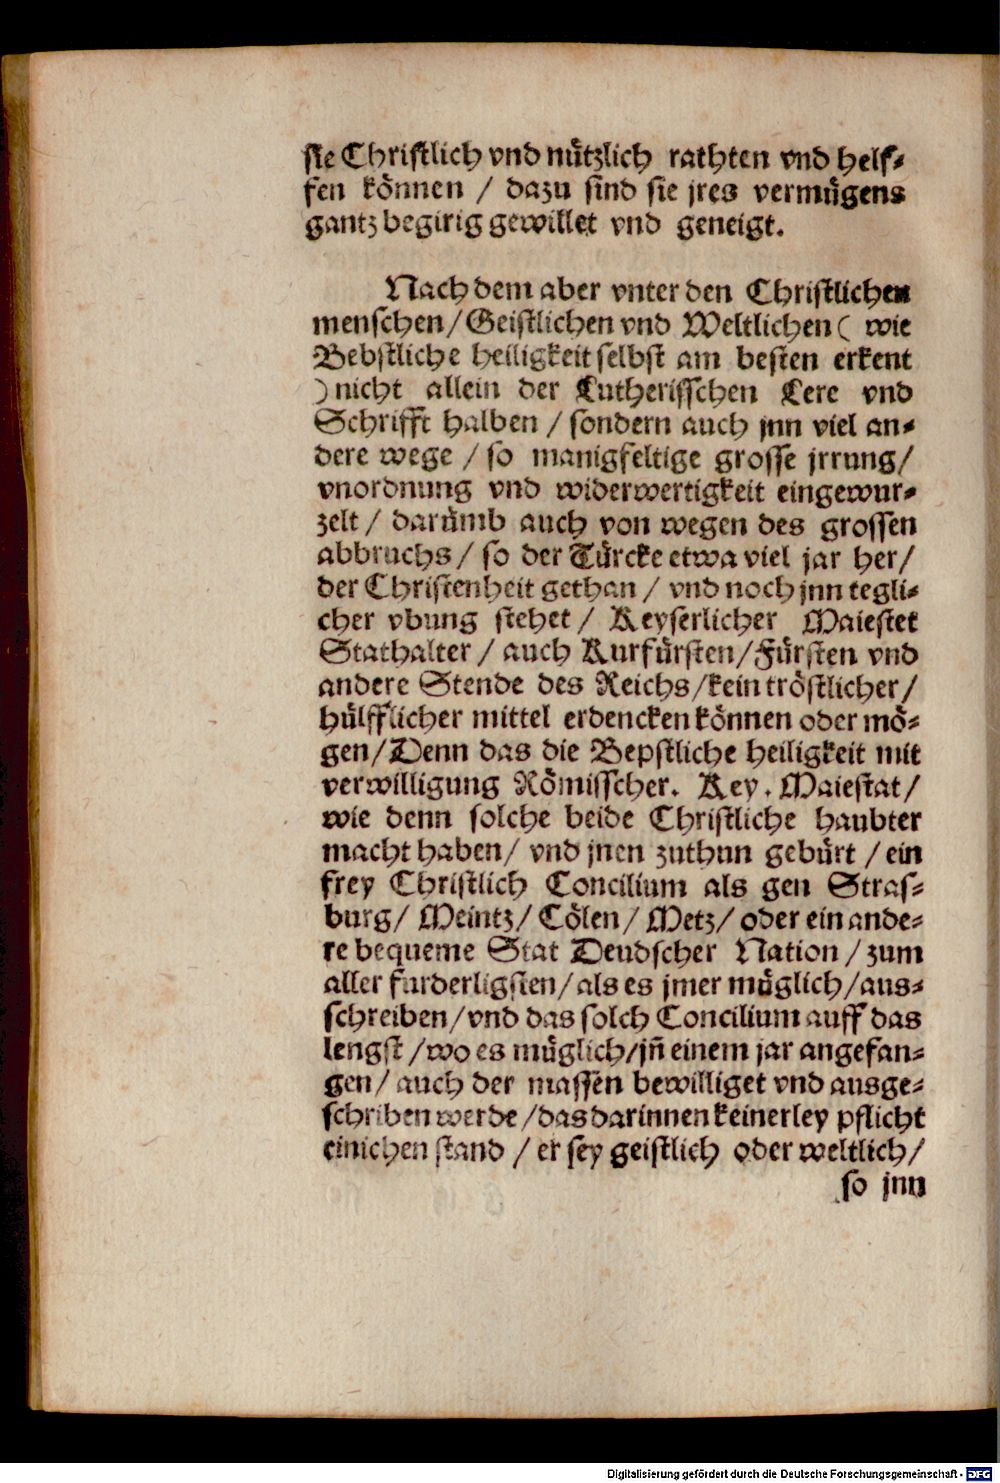 sie Christlich vnd nützlich rathten vnd helf-
fen können / dazu sind sie jres vermügens
gantz begirig gewillet vnd geneigt.
Nach dem aber vnter den Christlichen
menschen/Geistlichen vnd Weltlichen( wie
Bebstliche heiligkeit selbst am besten erkent
)nicht allein der Lutherisschen Lere vnd
Schrifft halben / sondern auch jnn viel an-
dere wege / so manigfeltige grosse jrrung/
vnordnung vnd widerwertigkeit eingewur-
zelt / darümb auch von wegen des grossen
abbruchs/ so der Türcke etwa viel jar her/
der Christenheit gethan / vnd noch jnn tegli-
cher vbung stehet / Keyserlicher Maiestet
Stathalter / auch Kurfürsten/Fürsten vnd
andere Stende des Reichs/kein tröstlicher/
hülfflicher mittel erdencken können oder mö-
gen/Denn das die Bepstliche heiligkeit mit
verwilligung Römisscher. Key. Maiestat/
wie denn solche beide Christliche haubter
macht haben/ vnd jnen zuthun gebürt / ein
frey Christlich Concilium als gen Stras-
burg/ Meintz/ Cölen/ Metz/ oder ein ande-
re bequeme Stat Deudscher Nation / zum
aller furderligsten/als es jmer müglich/aus-
schreiben/vnd das solch Concilium auff das
lengst /wo es müglich/jn̄ einem jar angefan-
gen/ auch der massen bewilliget vnd ausge-
schriben werde /das darinnen keinerley pflicht
einichen stand / er sey geistlich oder weltlich/
so jnn
Digitalisierung gefördert durch die Deutsche Forschungsgemeinschaft - DFG